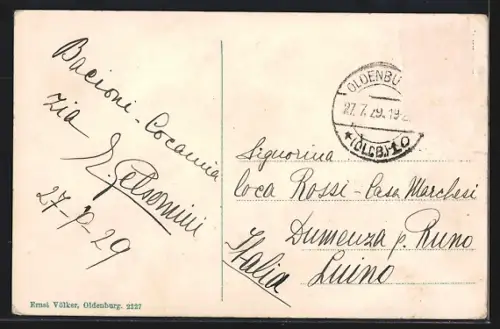 Bacioni - Cocannia
zia
E. Gelsomini
27-7-29
OLDENBU
27.7.29.19-2
* (OLDB) 1 o
Signorina
Coca Rossi - Casa Marchesi
Dumenza p. Runo
Luino
Italia
Ernst Völker, Oldenburg. 2227